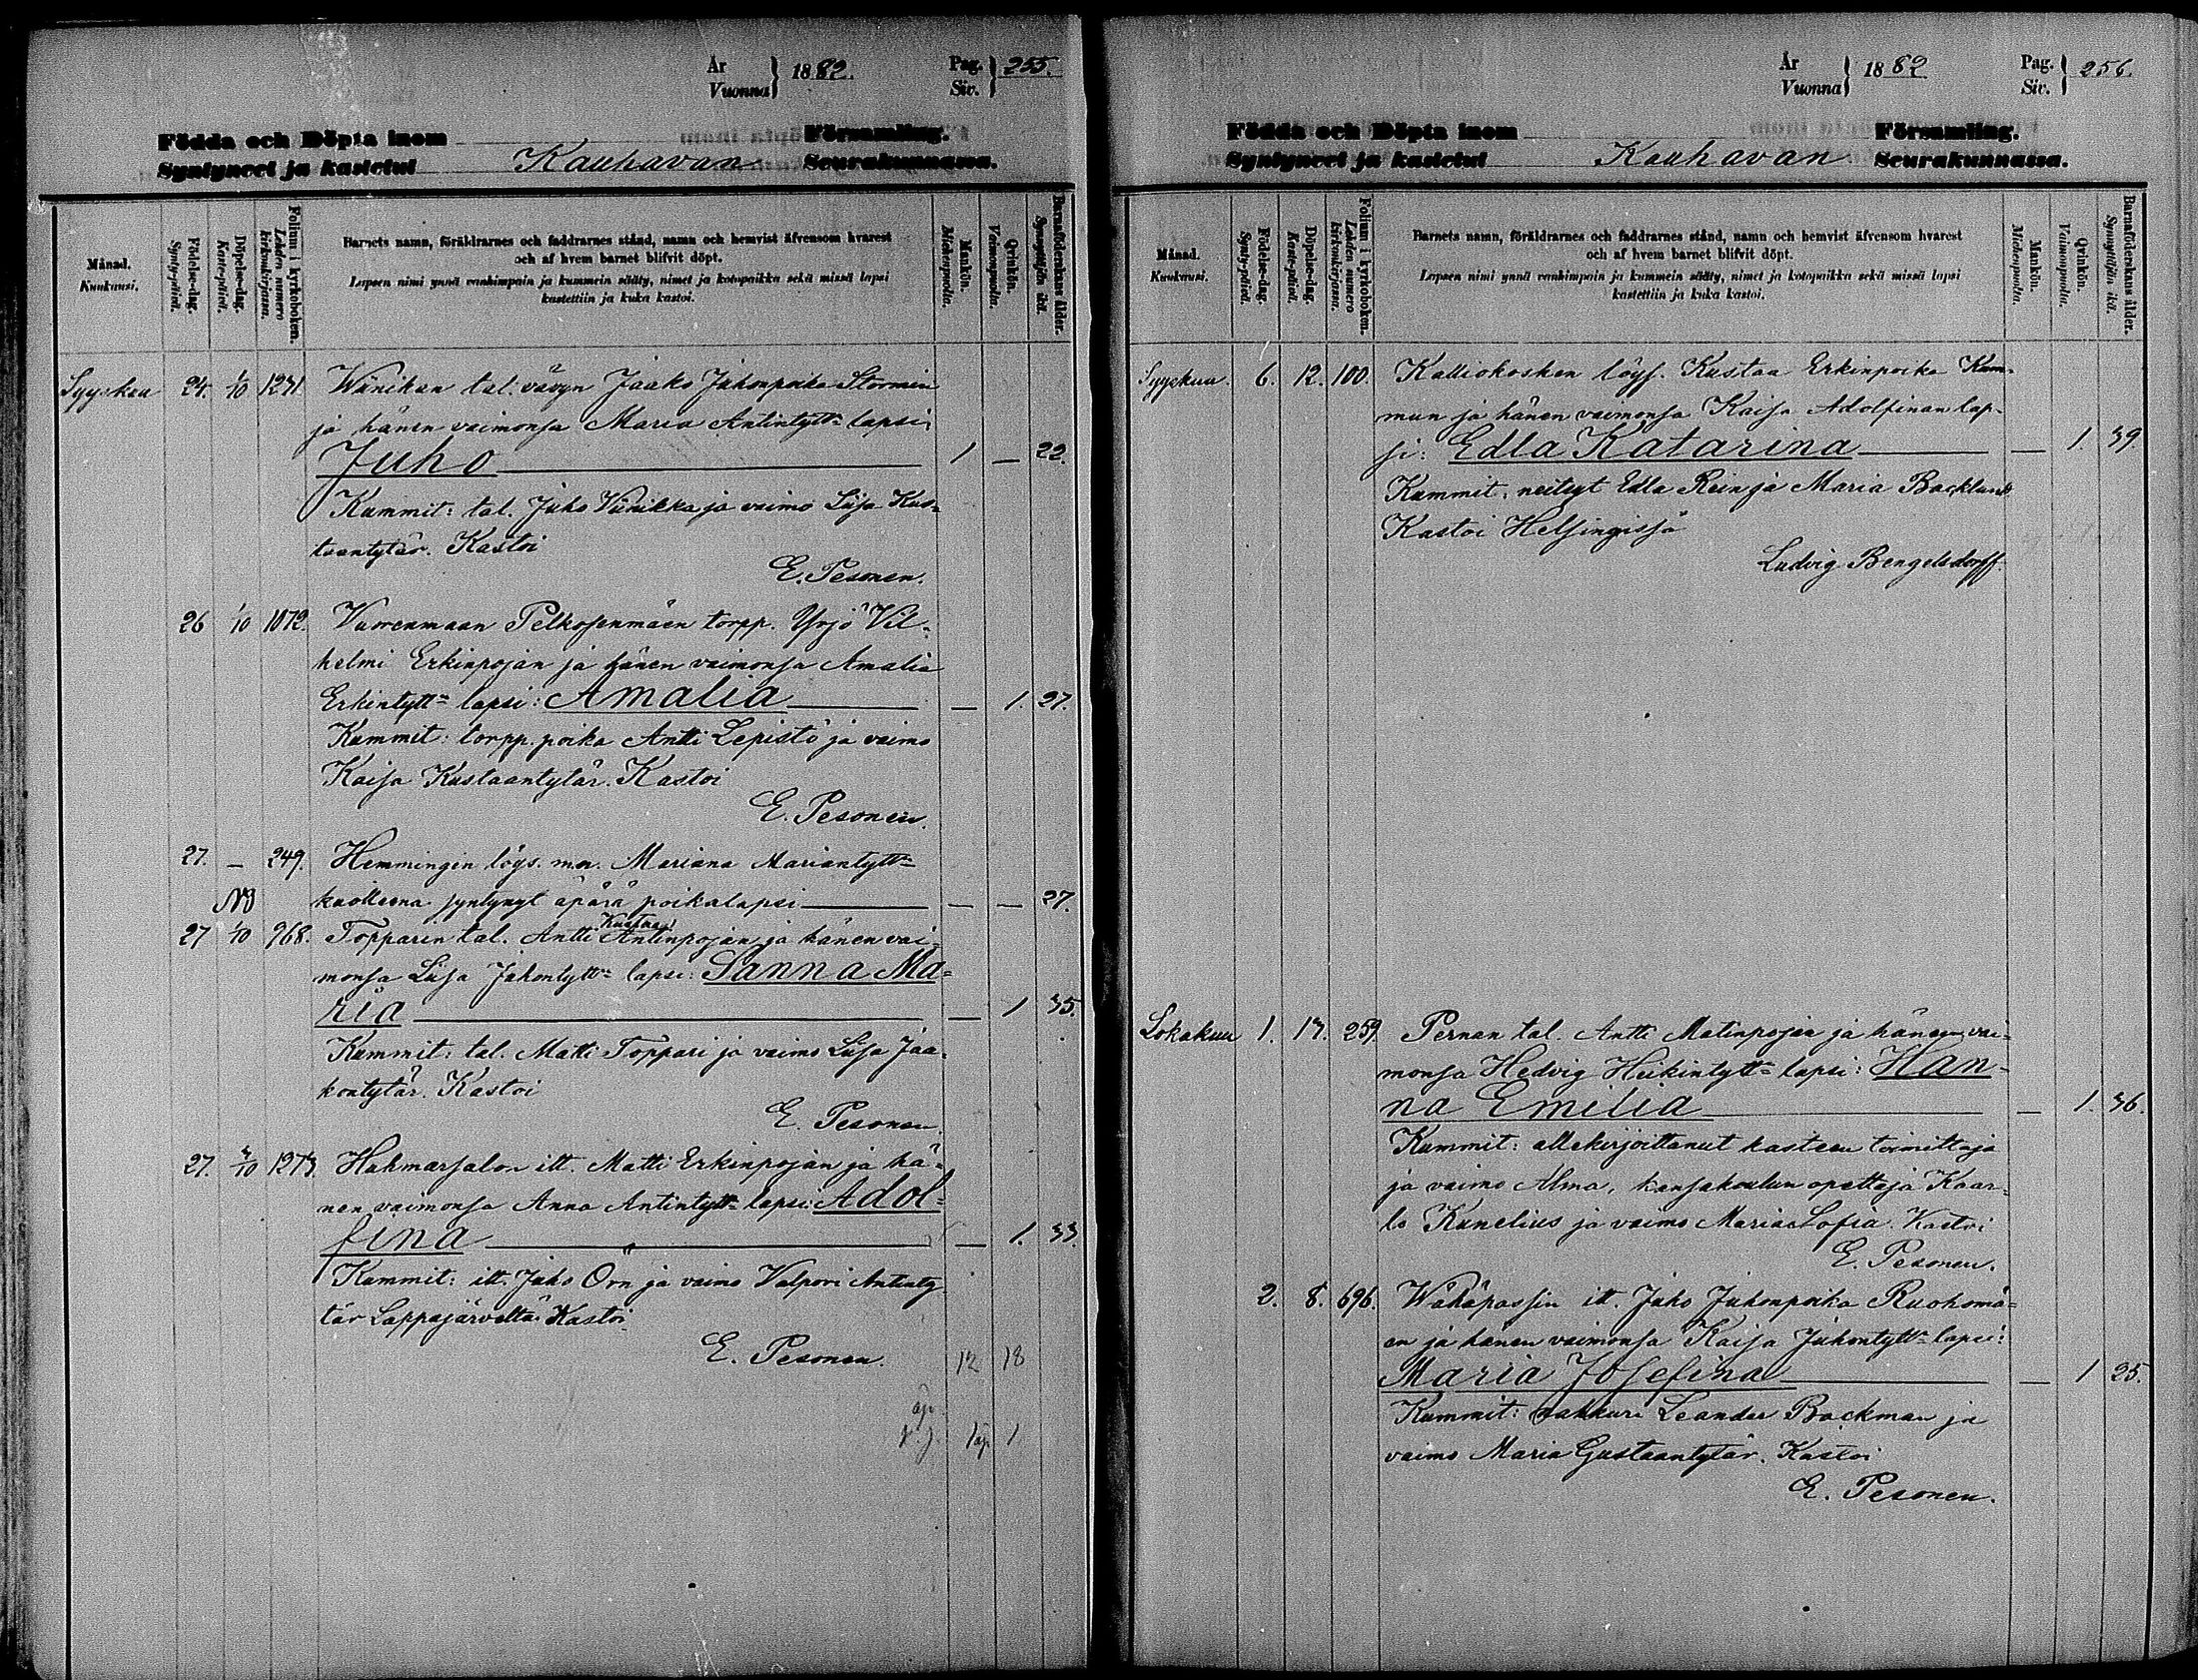 År
Vuonna } 1882.
Pag.
Siv. } 255.
Födda och Döpta inom Församling.
Syntyneet ja kastetut Kauhavan Seurakunnassa.
Månad.
Kuukausi.
Födelse-dag.
Synty-päivä.
Döpelse-dag.
Kaste-päivä.
Folium i kyrkoboken.
Lehden numero kirkonkirjassa.
Barnets namn, föräldrarnes och faddrarnes stånd, namn och hemvist äfvensom hvarest
och af hvem barnet blifvit döpt.
Lapsen nimi ynnä vanhimpain ja kummein sääty, nimet ja kotopaikka sekä missä lapsi
kastettiin ja kuka kastoi.
Mankön.
Miehenpuolta.
Qvinkön.
Vaimonpuolta.
Barnaföderskans ålder.
Synnyttäjän ikä.
Syyskuu 24. 1/10 1231. Wiinikan tal. vävyn Jaako Juhonpoika Stormin
ja hänen vaimonsa Maria Antintytt= lapsi:
Juho 1 — 22.
Kummit: tal. Juho Viinikka ja vaimo Liisa Kus=
taantytär. Kastoi
E. Pesonen.
26 1/10 1072. Vuorenmaan Pelkosenmäen torpp. Yrjö Vil=
helmi Erkinpojan ja hänen vaimonsa Amalia
Erkintytt= lapsi: Amalia — 1. 27.
Kummit: torpp. poika Antti Lepistö ja vaimo
Kaisa Kustaantytär. Kastoi
E. Pesonen.
27. — 249. Hemmingin löys. mn. Mariana Mariantytt=
NB kuolleena syntynyt äpärä poikalapsi — — 27.
Kustaa
27 1/10 968. Topparin tal. Antti Antinpojan ja hänen vai=
monsa Liisa Juhontytt= lapsi: Sanna Ma=
ria — 1 35.
Kummit: tal. Matti Toppari ja vaimo Liisa Jaa=
kontytär. Kastoi
E. Pesonen.
27. /10 1273. Huhmarsalon itt. Matti Erkinpojan ja hä=
nen vaimonsa Anna Antintytt= lapsi: Adol=
fina — 1. 33.
Kummit: itt. Juho Örn ja vaimo Valpori Antinty
tär Lappajärveltä. Kastoi
E. Pesonen. 12 18
äp.
1 äp. 1
År
Vuonna } 1882
Pag.
Siv. } 256.
Födda och Döpta inom Församling.
Syntyneet ja kastetut Kauhavan Seurakunnassa.
Månad.
Kuukausi.
Födelse-dag.
Synty-päivä.
Döpelse-dag.
Kaste-päivä.
Folium i kyrkoboken.
Lehden numero kirkonkirjassa.
Barnets namn, föräldrarnes och faddrarnes stånd, namn och hemvist äfvensom hvarest
och af hvem barnet blifvit döpt.
Lapsen nimi ynnä vanhimpain ja kummein sääty, nimet ja kotopaikka sekä missä lapsi
kastettiin ja kuka kastoi.
Mankön.
Miehenpuolta.
Qvinkön.
Vaimonpuolta.
Barnaföderskans ålder.
Synnyttäjän ikä.
Syyskuu. 6. 12. 100. Kalliokosken löys. Kustaa Erkinpoika Kum=
mun ja hänen vaimonsa Kaisa Adolfinan lap=
si: Edla Katarina — 1. 39.
Kummit: neitsyt Edla Rein ja Maria Backlund
Kastoi Helsingissä
Ludvig Bengelsdorff.
Lokakuu 1. 13. 259. Pernan tal. Antti Matinpojan ja hänen vai=
monsa Hedvig Heikintytt= lapsi: Han=
na Emilia — 1. 36.
Kummit: allekirjoittanut kasteen toimittaja
ja vaimo Alma, kansakoulun opettaja Kaar=
lo Kunelius ja vaimo Maria Sofia. Kastoi
E. Pesonen.
2. 8. 696. Wähäpassin itt. Juho Juhonpoika Ruohomä=
en ja hänen vaimonsa Kaisa Juhontytt= lapsi:
Maria Josefina — 1 25.
Kummit: nahkuri Leander Backman ja
vaimo Maria Gustaantytär. Kastoi
E. Pesonen.